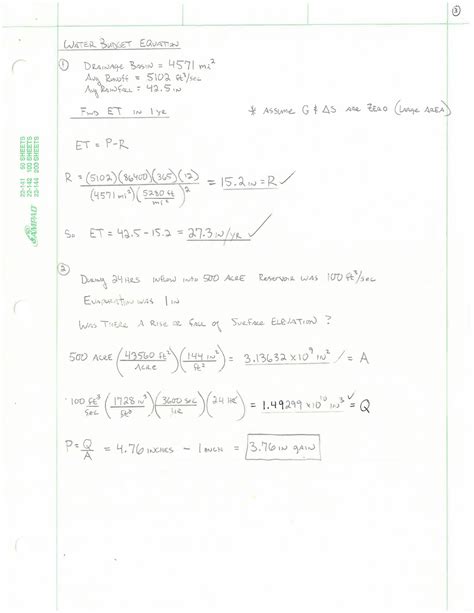 ③
WATER BUDGET EQUATION
① DRAINAGE BASIN = 4571 mi²
Avg Runoff = 5102 ft³/sec
Avg RAINFALL = 42.5 in
FIND ET IN 1 yr * ASSUME G & ΔS ARE ZERO (LARGE AREA)
ET = P-R
R = (5102)(86400)(365)(12) / (4571 mi²)(5280 ft/mi)² = 15.2 in = R ✓
So ET = 42.5 - 15.2 = 27.3 in/yr ✓
② During 24 HRS inflow into 500 ACRE Reservoir was 100 ft³/sec
Evaporation was 1 in
WAS THERE A RISE OR FALL OF SURFACE ELEVATION ?
500 ACRE (43560 ft²/Acre)(144 in²/ft²) = 3.13632 x10⁹ in² ✓ = A
100 ft³/sec (1728 in³/ft³)(3600 sec/HR)(24 HR) = 1.49299 x10¹⁰ in³ ✓ = Q
P = Q/A = 4.76 INCHES - 1 INCH = 3.76 in gain
22-141 50 SHEETS
22-142 100 SHEETS
22-144 200 SHEETS